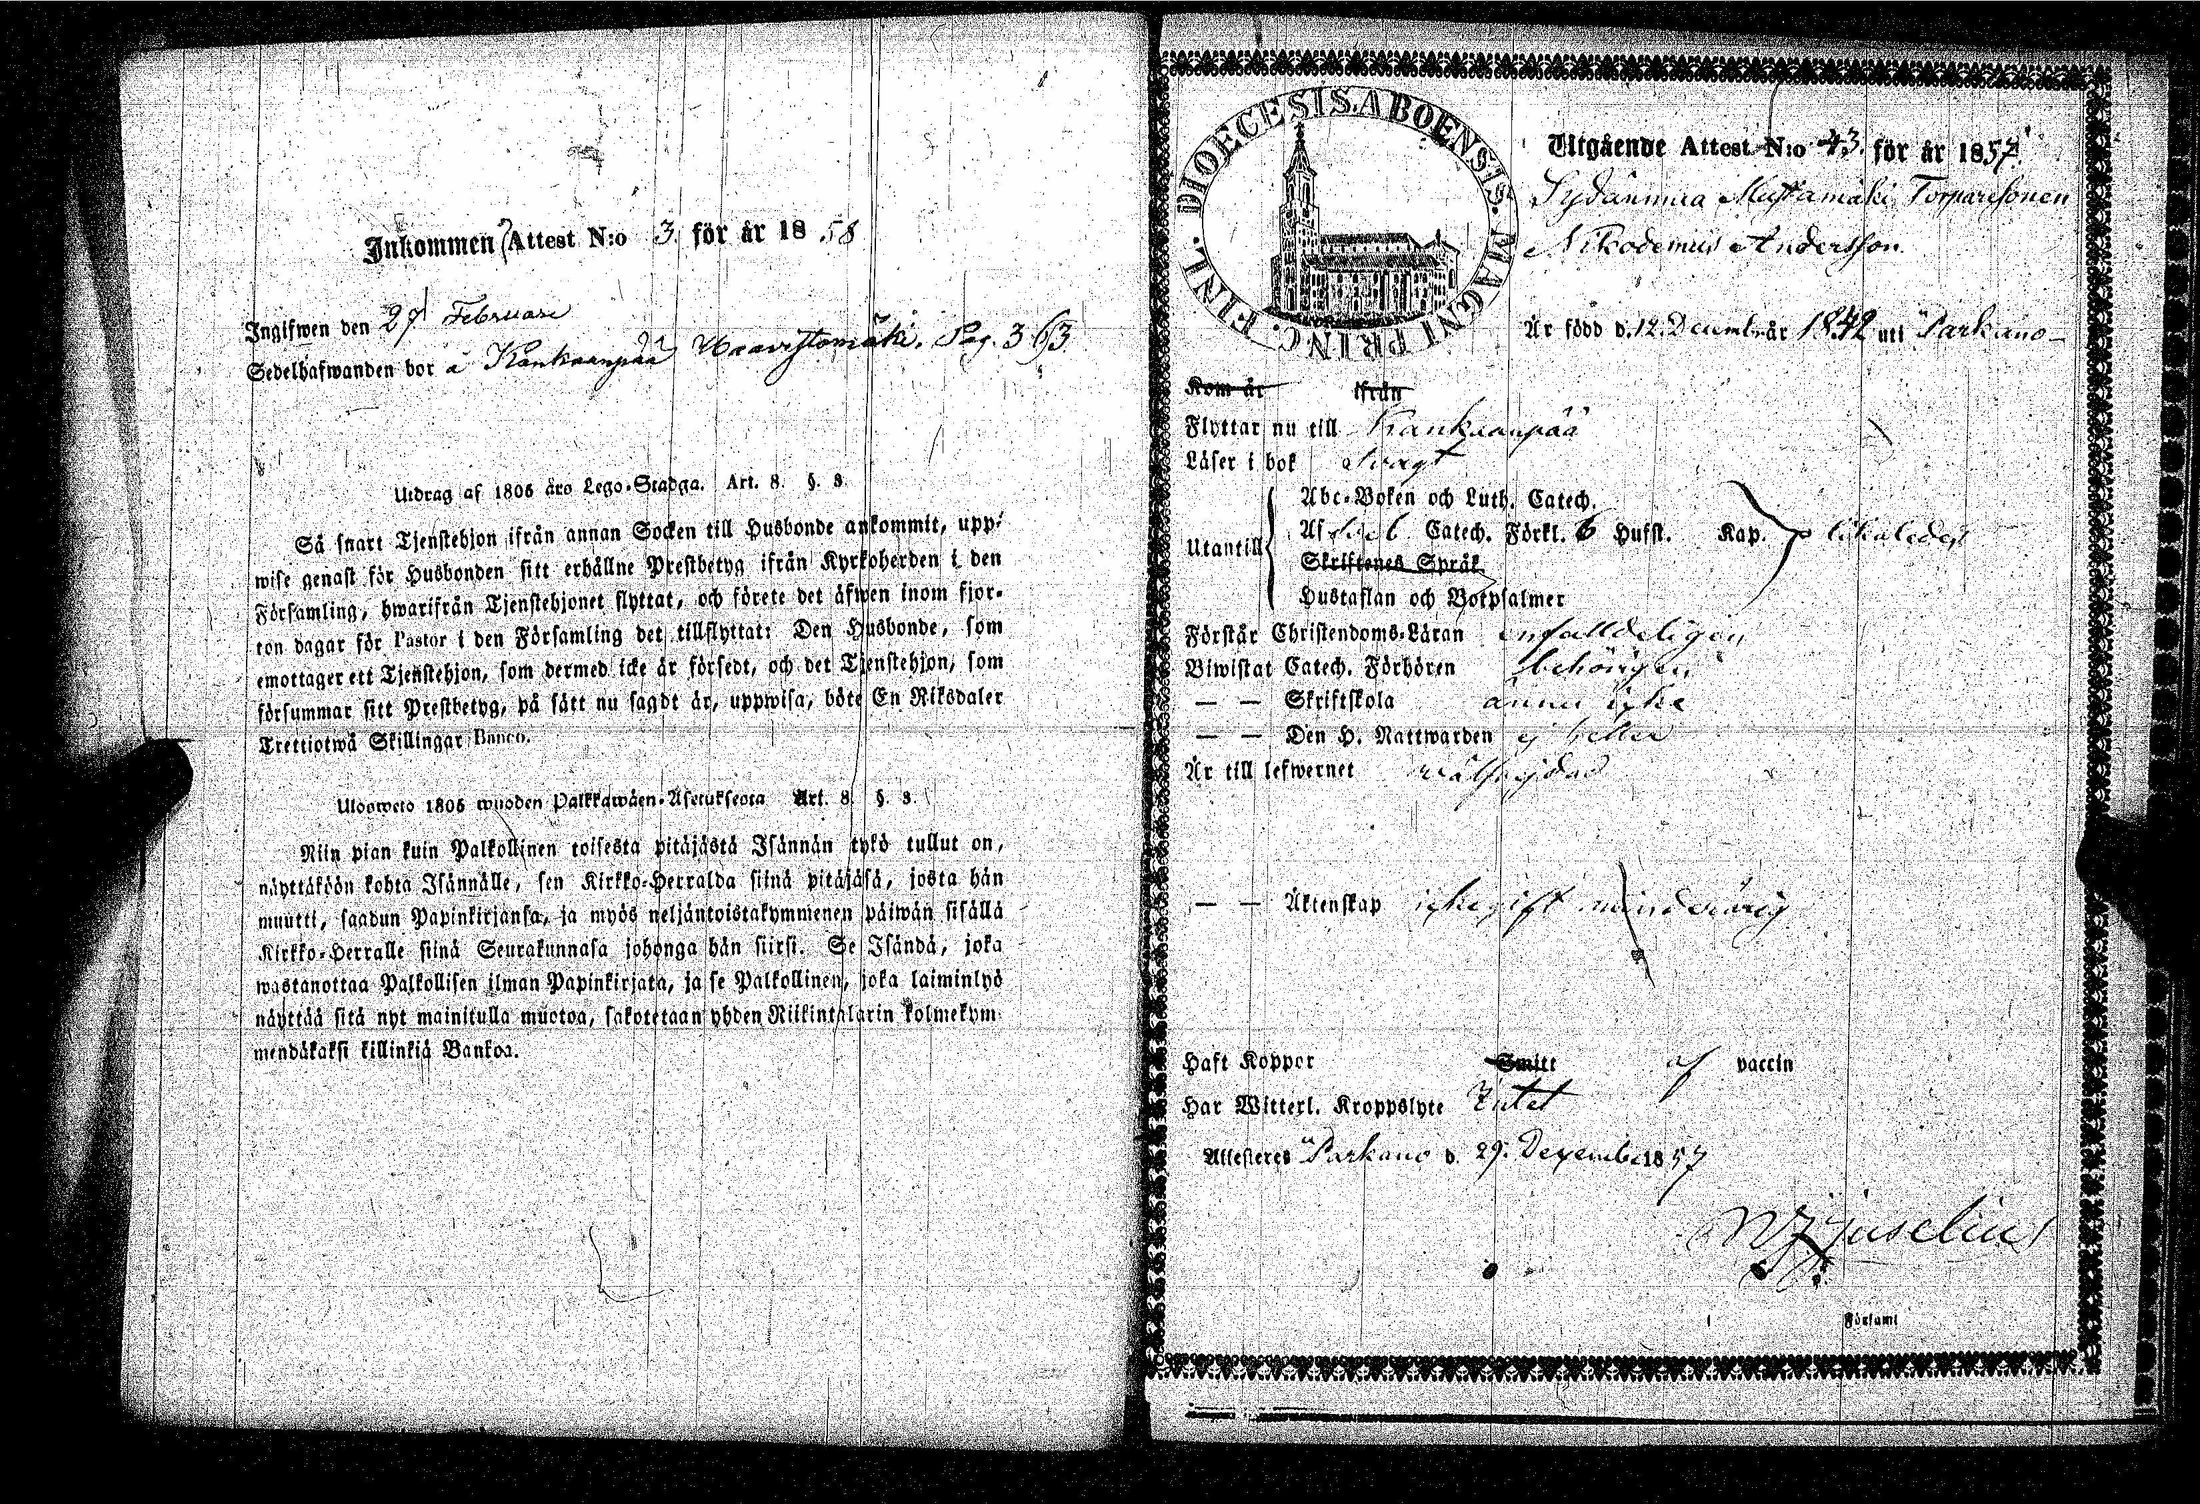 Inkommen Attest N:o 3. för år 1858
Ingifwen den 27 Februari
Sedelhafwanden bor å Kankaanpää Haavistomäki. Pag. 363
Utdrag af 1805 års Lego-Stadga. Art. 8. §. 3.
Så snart Tjenstehjon ifrån annan Socken till Husbonde ankommit, upp-
wise genast för Husbonden sitt erhållne Prestbetyg ifrån Kyrkoherden i den
Församling, hwarifrån Tjenstehjonet flyttat, och förete det äfwen inom fjor-
ton dagar för Pastor i den Församling det tillflyttat: Den Husbonde, som
emottager ett Tjenstehjon, som dermed icke är försedt, och det Tjenstehjon, som
försummar sitt Prestbetyg, på sätt nu sagdt är, uppwisa, böte En Riksdaler
Trettiotwå Skillingar Banco.
Ulosweto 1805 wuoden Palkkawäen-Asetuksesta Art. 8. §. 3.
Niin pian kuin Palkollinen toisesta pitäjästä Isännän tykö tullut on,
näyttäköön kohta Isännälle, sen Kirkko-Herralda siinä pitäjäsä, josta hän
muutti, saadun Papinkirjansa, ja myös neljäntoistakymmenen päiwän sisällä
Kirkko-Herralle siinä Seurakunnasa johonga hän siirsi. Se Isändä, joka
wastanottaa Palkollisen ilman Papinkirjata, ja se Palkollinen, joka laiminlyö
näyttää sitä nyt mainitulla muotoa, sakotetaan yhden Riikintalarin kolmekym-
mendäkaksi killinkiä Bankoa.
DIOECESIS. ABOENSIS. MAGNI PRINC. FINL.
Utgående Attest N:o 43. för år 1857.
Sydänmaa Mustamäki Torparesonen
Nikodemus Andersson
Är född d. 12. Decemb. år 1842 uti Parkano
Kom år ifrån
Flyttar nu till Kankaanpää
Läser i bok svagt
Utantill
Abc-Boken och Luth. Catech.
Af Catech. Förkl. 6 Hufst. Kap. likaledes
Skriftenes Språk
Hustaflan och Botpsalmer
Förstår Christendoms-Läran enfalldeligen
Biwistat Catech. Förhören behörigen
— — Skriftskola ännu icke
— — Den H. Nattwarden ej heller
Är till lefwernet wälfrejdad
— — Äktenskap icke gift minderårig
Haft Koppor Smitt af vaccin
Har Witterl. Kroppslyte Intet
Attesteres Parkano d. 29. December 1857
Juselius
Församl